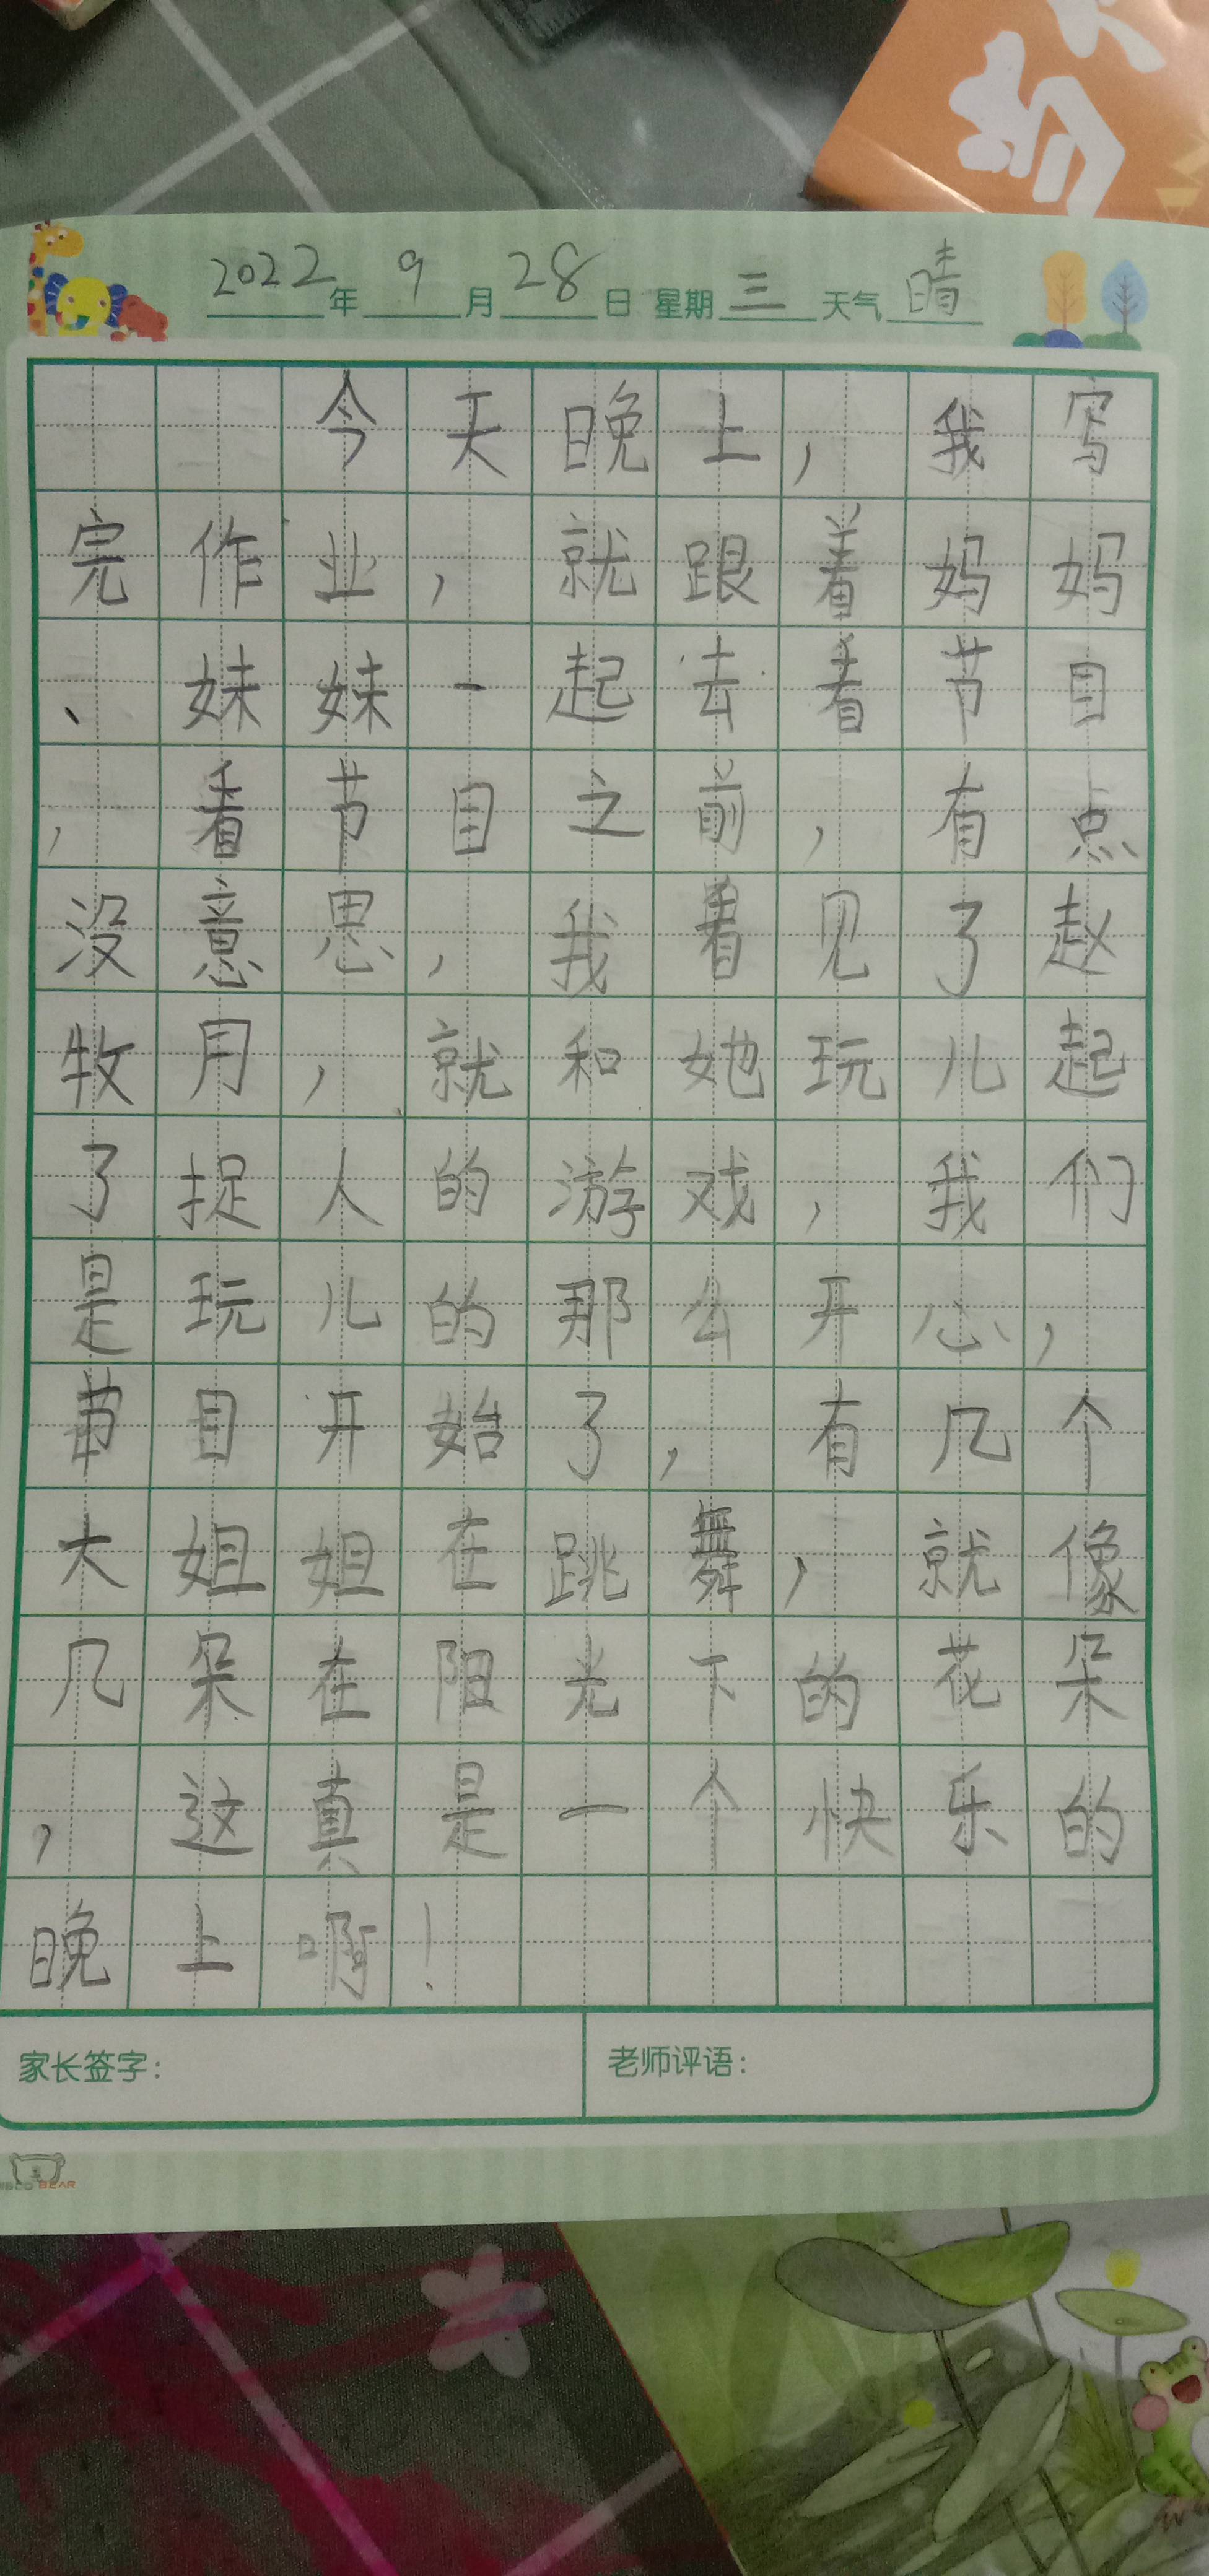 2022年9月28日 星期三 天气晴
今天晚上，我写
完作业，就跟着妈妈
、妹妹一起去看节目
，看节目之前，有点
没意思，我看见了赵
牧月，就和她玩儿起
了捉人的游戏，我们
是玩儿的那么开心，
节目开始了，有几个
大姐姐在跳舞，就像
几朵在阳光下的花朵
，这真是一个快乐的
晚上啊！
家长签字：
老师评语：